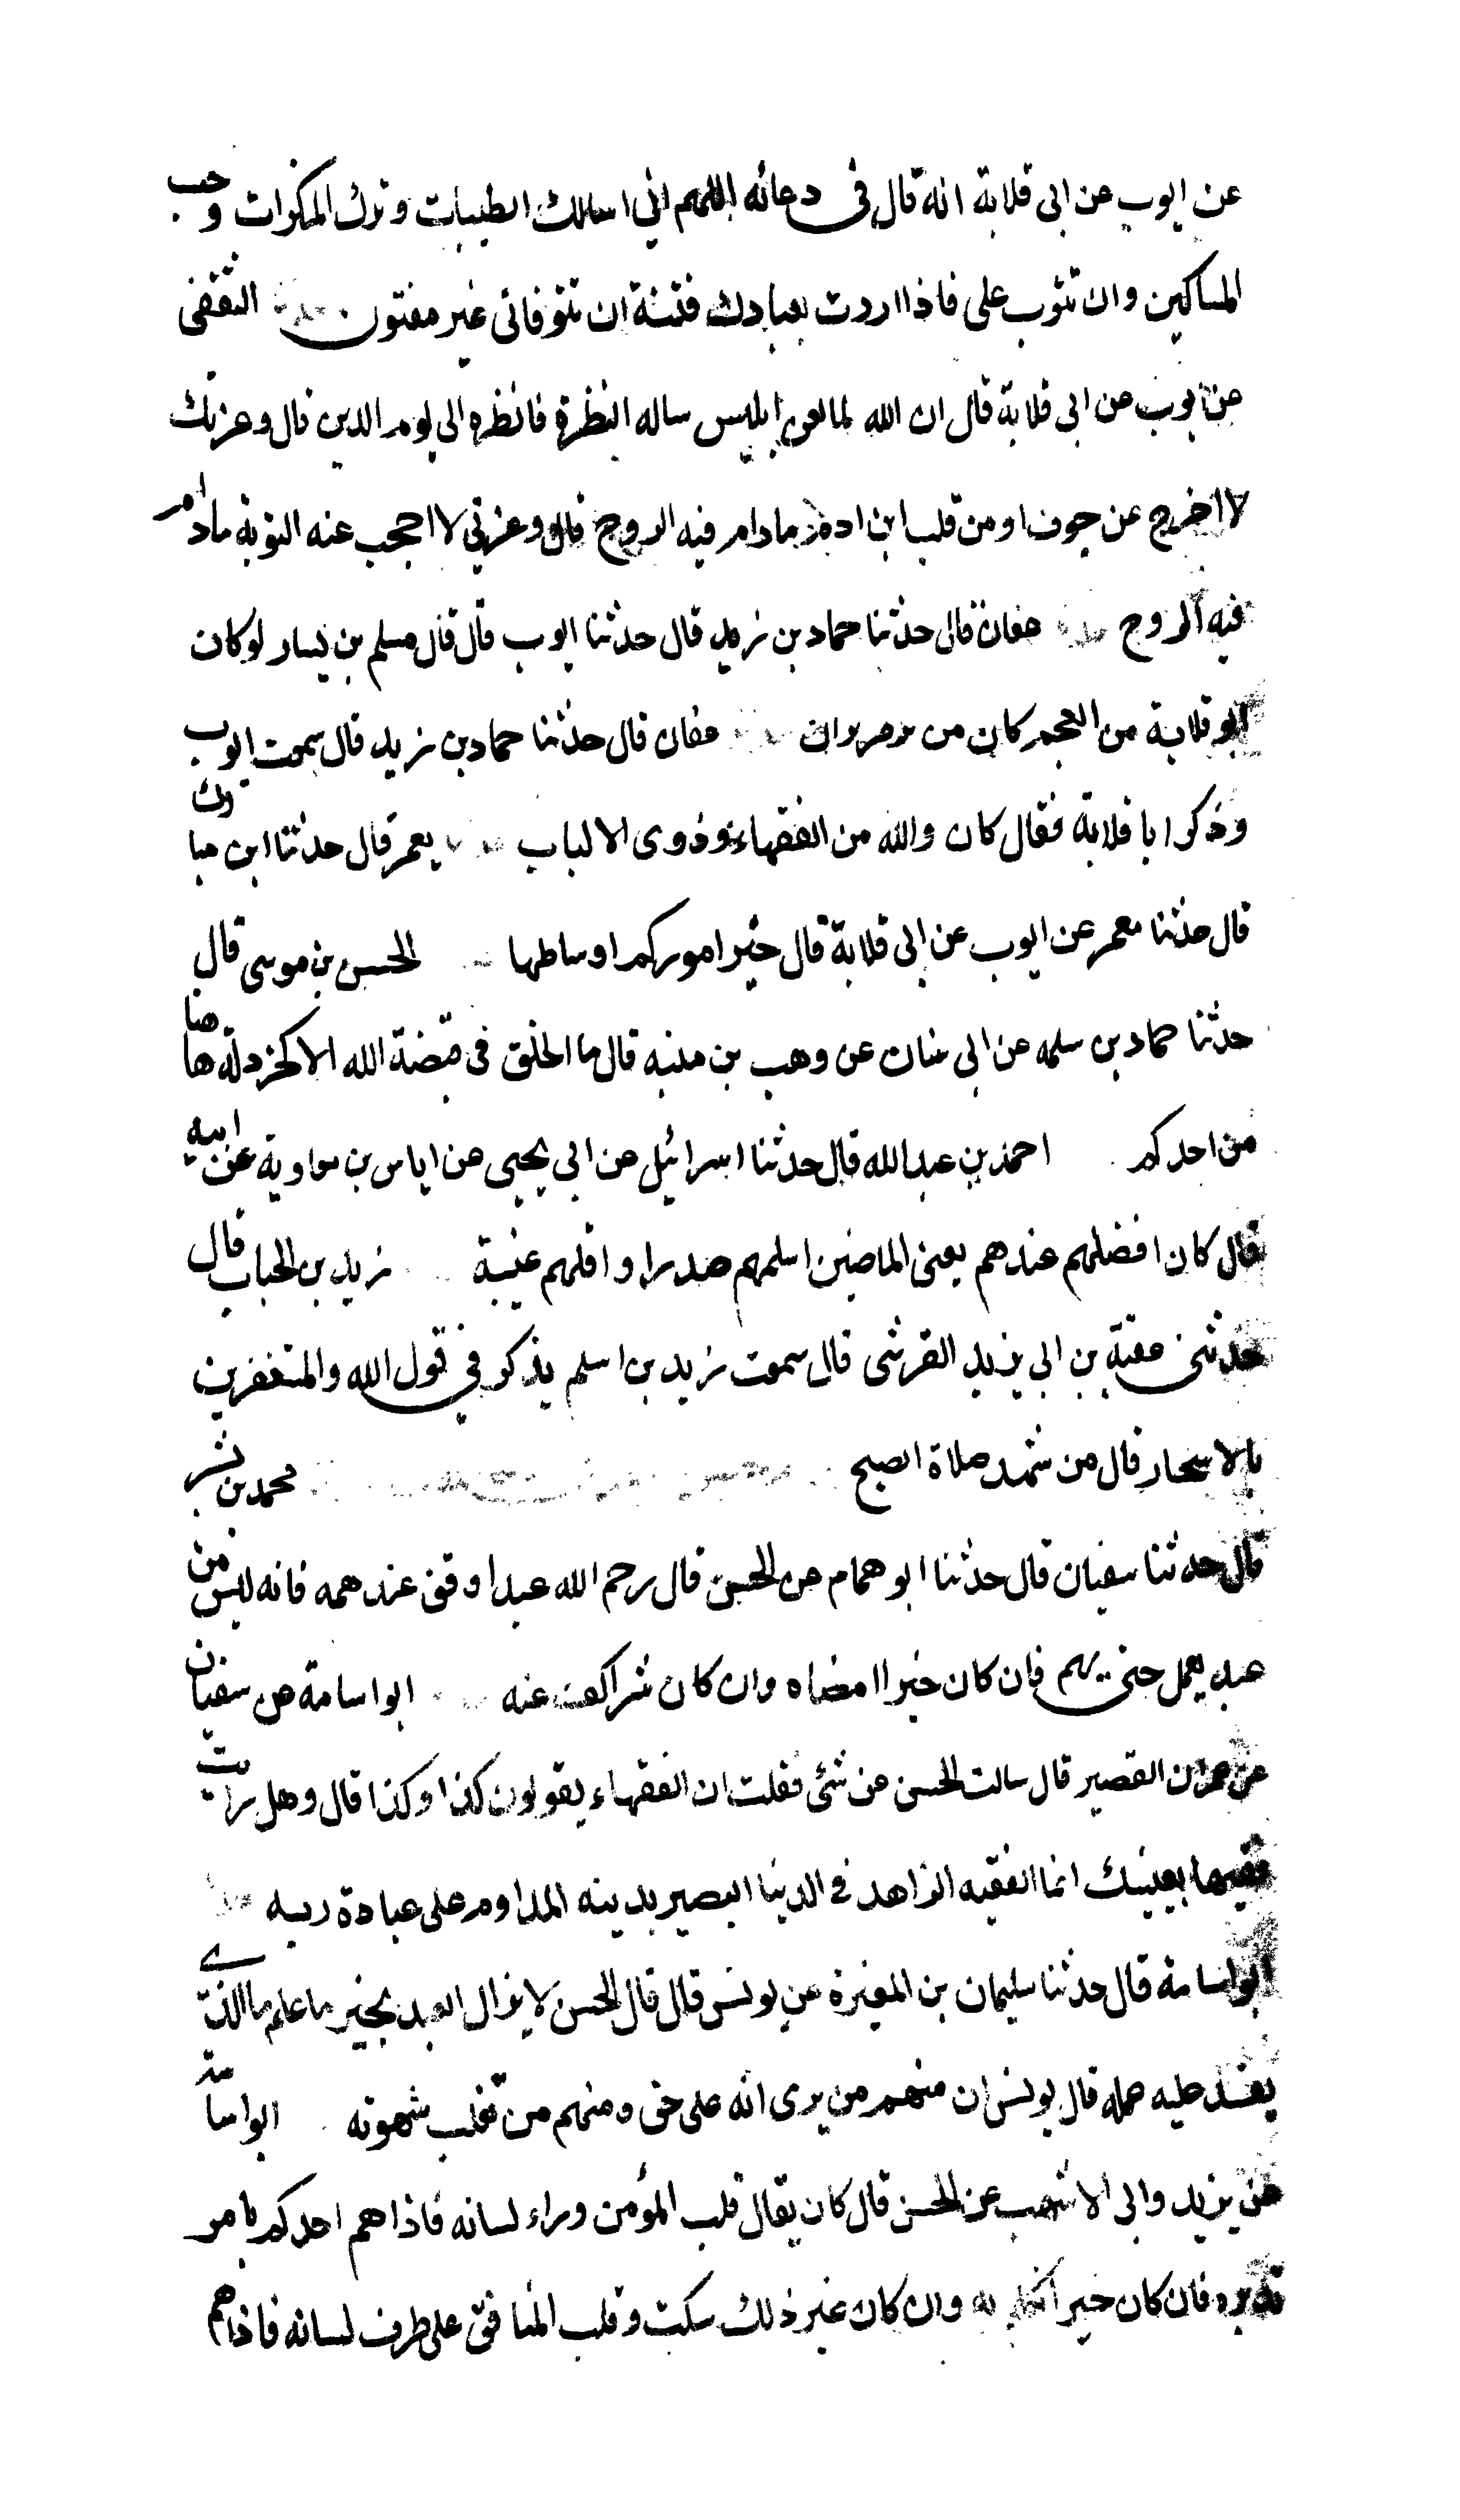 عن ايوب عن ابى قلابة انه قال فى دعائه اللهم اني اسالك الطيبات وترك المنكرات وحب
المساكين وان تتوب على فاذا اردت بعبادك فتنة ان تتوفانى غير مفتون الثقفى
عن ايوب عن ابى قلابة قال ان الله لما لعن ابليس ساله النظرة فانظره الى يوم الدين قال وعزتك
لا اخرج من جوف او من قلب ابن ادم مادام فيه الروح قال وعزتي لا احجب عنه التوبة مادام
فيه الروح عفان قال حدثنا حماد بن زيد قال حدثنا ايوب قال قال مسلم بن يسار لو كان
ابو قلابة من العجم كان من عفان قال حدثنا حماد بن زيد قال سمعت ايوب
وذكر ابا قلابة فقال كان والله من الفقهاء ذوى الالباب يعمر قال حدثنا ابن مبارك
قال حدثنا معمر عن ايوب عن ابى قلابة قال خير اموركم اوساطها الحسن بن موسى قال
حدثنا حماد بن سلمه عن ابى سنان عن وهب بن منبه قال ما الخلق فى قبضة الله الا كخردلة هاهنا
من احدكم احمد بن عبدالله قال حدثنا اسرائيل عن ابى يحيى عن اياس بن معاوية عن ابيه
قال كان افضلهم عندهم يعنى الماضين اسلمهم صدرا واقلهم غيبة زيد بن الحباب قال
حدثنى عقبة بن ابي يزيد القرشى قال سمعت زيد بن اسلم يذكر في قول الله والمستغفرين
بالاسحار قال من شهد صلاة الصبح محمد بن بشر
قال حدثنا سفيان قال حدثنا ابو همام عن الحسن قال رحم الله عبدا وقف عند همه فانه ليس من
عبد يعمل حتى يهم فان كان خيرا امضاه وان كان شرا كف عنه ابو اسامة عن سفيان
عن عمران القصير قال سالت الحسن عن شئ فقلت ان الفقهاء يقولون كذا وكذا قال وهل رايت
فقيها بعينك انما الفقيه الزاهد فى الدنيا البصير بدينه المداوم على عبادة ربه
ابو اسامة قال حدثنا سليمان بن المغيرة عن يونس قال قال الحسن لا يزال العبد بخير ما علم ما الذي
يفسد عليه عمله قال يونس ان منهم من يرى انه على حق ومنهم من تغلب شهوته ابو اسامة
عن يزيد وابى الاشهب عن الحسن قال كان يقال قلب المؤمن وراء لسانه فاذا هم احدكم بامر
تدبره فان كان خيرا تكلم به وان كان غير ذلك سكت وقلب المنافق على طرف لسانه فاذا هم